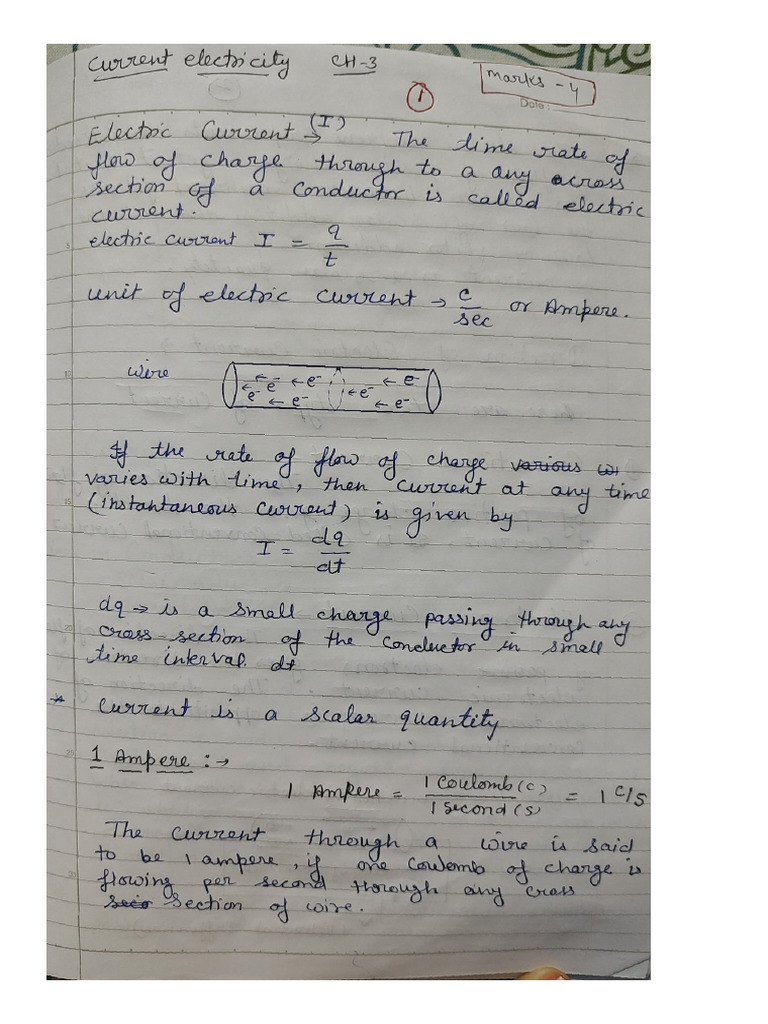 Current electricity CH-3
Marks - 4
1
Date:
Electric Current (I) → The time rate of
flow of charge through to a any across
section of a conductor is called electric
current.
electric current I = q/t
unit of electric current → c/sec or Ampere.
wire
← e⁻ ← e⁻ ← e⁻
← e⁻ ← e⁻ ← e⁻ ← e⁻
If the rate of flow of charge various
varies with time, then current at any time
(instantaneous current) is given by
I = dq/dt
dq → is a small charge passing through any
cross section of the conductor in small
time interval dt
* Current is a scalar quantity
1 Ampere :→
1 Ampere = 1 Coulomb (c)/1 second (s) = 1 c/s
The current through a wire is said
to be 1 ampere, if one coulomb of charge is
flowing per second thorough any cross
section of wire.